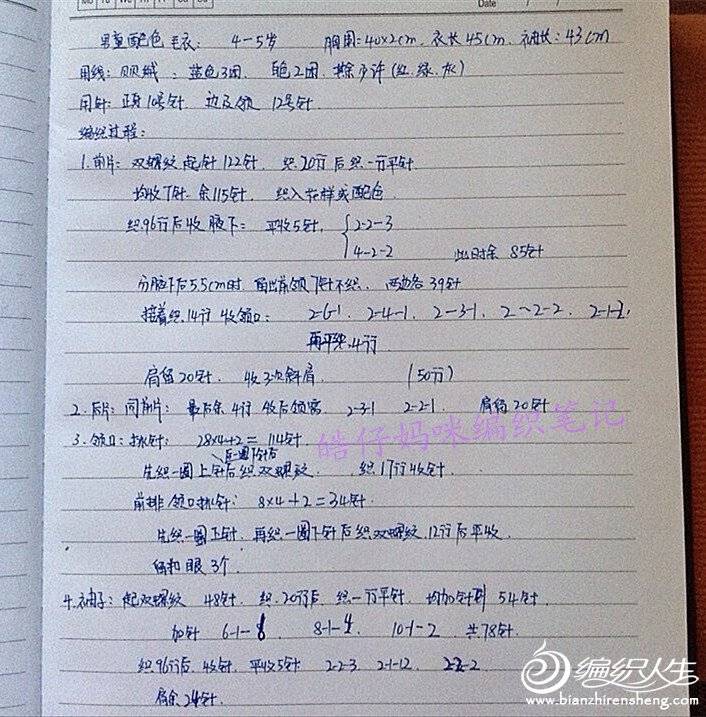 Date
男童配色毛衣: 4-5岁 胸围=40x2cm. 衣长45cm. 袖长:43cm
用线: 贝贝绒: 蓝色3团. 白色2团. 撒少许(红.绿.灰)
用针: 正身10号针 边及领 12号针
编织过程:
1. 前片: 双螺纹起针122针 织20行后织一行平针
均收7针. 余115针. 织入花样或配色
织96行后收腋下: 平收5针. 2-2-3
4-2-2 此时余 85针
分腋下后5.5cm时 留出前领7针不织. 两边各39针
接着织14行 收领口: 2-6-1 2-4-1 2-3-1 2-2-2 2-1-2,
再平织4行
肩留20针. 收3次斜肩. (50行)
2. 后片: 同前片: 最后余4行 收后领窝 2-3-1 2-2-1 肩留20针
3. 领口: 挑针: 28x4+2=114针
后一圈下针后
先织一圈上针后织双螺纹 织17行收针
前排领口挑针: 8x4+2=34针
先织一圈上针. 再织一圈下针后织双螺纹12行后平收
留扣眼3个
4. 袖子: 起双螺纹 48针. 织20行后 织一行平针. 均加针到 54针.
加针 6-1-6 8-1-4 10-1-2 共78针.
织96行后 收针. 平收5针 2-2-3 2-1-12 2-2-2
肩余24针.
皓仔妈咪编织笔记
编织人生
www.bianzhirensheng.com